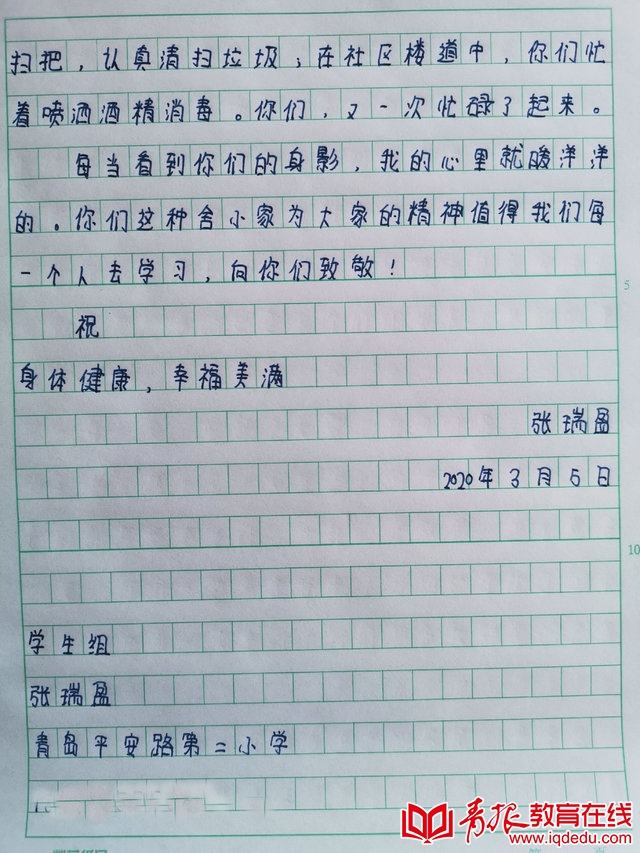 扫把，认真清扫垃圾；在社区楼道中，你们忙
着喷洒酒精消毒。你们，又一次忙碌了起来。
每当看到你们的身影，我的心里就暖洋洋
的。你们这种舍小家为大家的精神值得我们每
一个人去学习，向你们致敬！
5
祝
身体健康，幸福美满
张瑞盈
2020年3月5日
10
学生组
张瑞盈
青岛平安路第二小学
青报教育在线
www.iqdedu.com